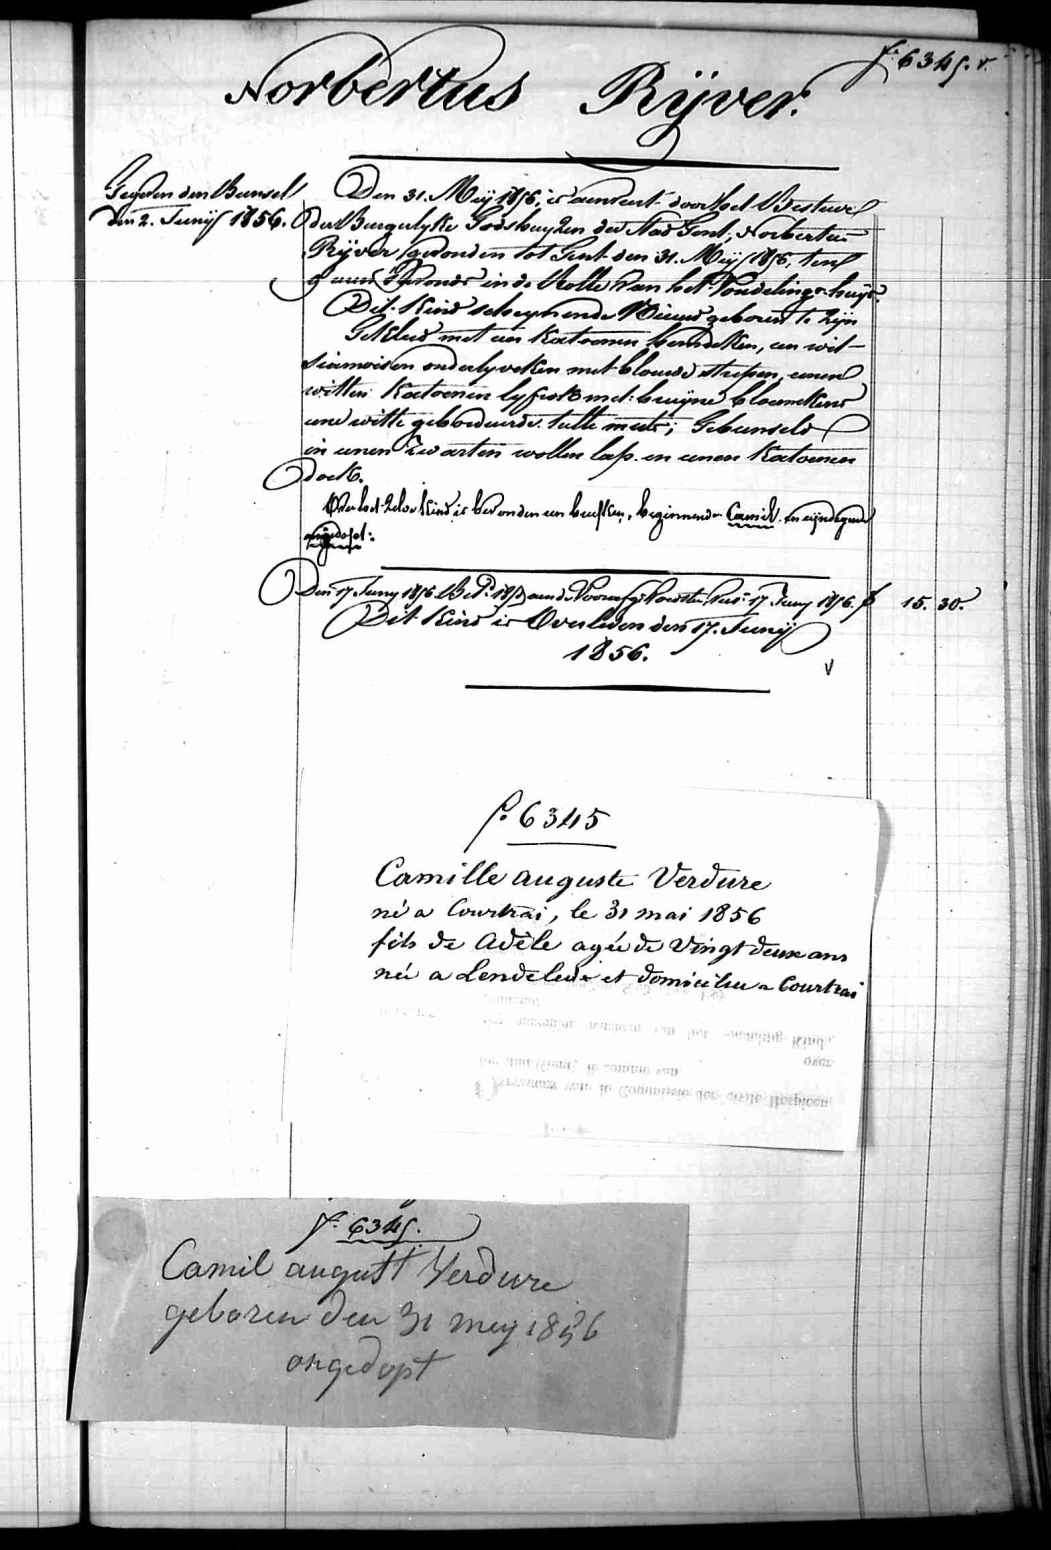 fº 6345. v.
Norbertus Rijver.
Gegeven den Bunsel
den 2. Junij 1856.
Den 31. Meij 1856, is aenveert door het Bestuer
der Burgerlyke Godshuyzen der Stad Gent, Norbertus
Rijver gevonden tot Gent den 31. Meij 1856, ten
9 uren 's avonds in de Rolle van het Vondelingshuys.
Dit Kind schynende Nieuw geboren te zijn
Gekleed met een Katoenen hemdeken, een wit
siamoisen onderlyveken met blauwe strepen, eenen
witten Katoenen lyfrok met bruyne bloemekens
eene witte geborduerde tulle muts; Gebunseld
in eenen zwarten wollen lap en eenen Katoenen
doek.
Over het zelve Kind is bevonden een briefken, beginnende Camil en eyndigende
ongedopt.
Den 17 Juny 1856 Bet. aen de Voornf 17 Juny 1856. f 15. 30.
Dit Kind is Overleden den 17. Junij
1856.
fº 6345
Camille auguste Verdure
né a Courtrai, le 31 mai 1856
fils de Adèle agée de Vingt deux ans
né a Lendelede et domiciliee a Courtrai
fº 6345.
Camil august Verdure
geboren den 31 mey 1856
ongedopt